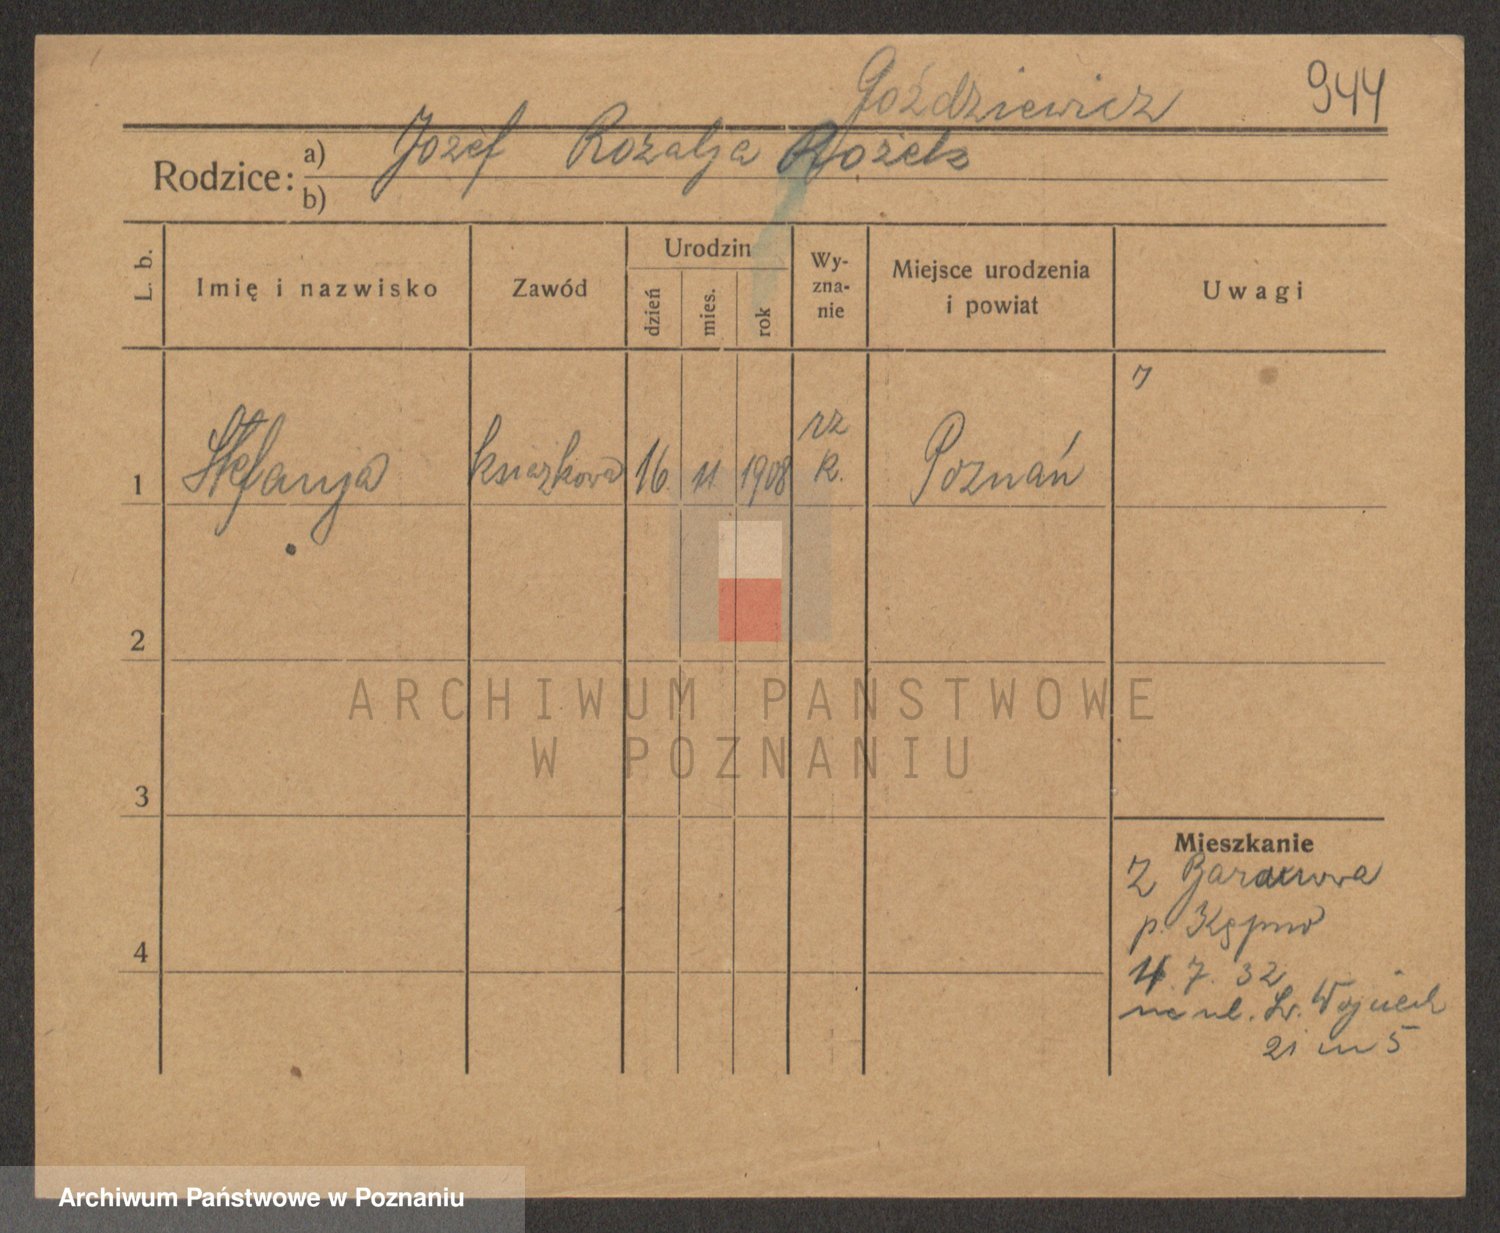 Goździewicz 944
Rodzice: a) Józef Rozalja Rożek
b)
L. b. Imię i nazwisko Zawód Urodzin dzień mies. rok Wy-zna-nie Miejsce urodzenia i powiat Uwagi
1 Stefanja książkowa 16 11 1908 rz k. Poznań
2
3
4
Mieszkanie
Z
p. Kępno
7. 32
na ul. Św. Wojciech
21 m 5
ARCHIWUM PAŃSTWOWE
W POZNANIU
Archiwum Państwowe w Poznaniu